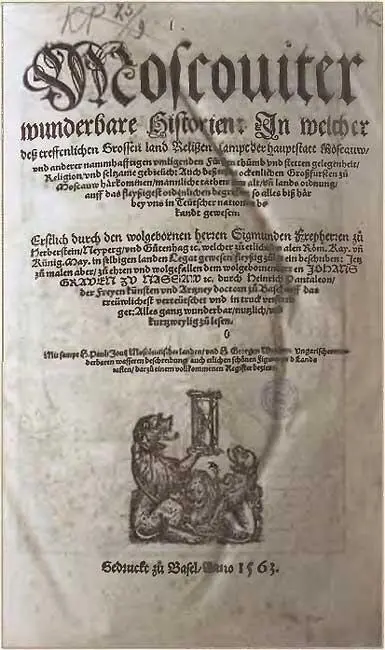 Moscouiter
wunderbare Historien: In welcher
deß treffenlichen Grossen land Reüssen sampt der hauptstatt Moscauw/
vnd anderer nammhafftigen vmligenden Fürstenthumb vnd stetten gelegenheit/
Religion/vnd selzame gebreüch: Auch deß erschrockenlichen Großfürsten zů
Moscauw härkommen/mannliche tathen, vnd lands ordnung/
auff das fleyßigest ordenlichen begriffen: so alles biß här
bey vns in Teütscher nation vnbe
kandt gewesen.
Erstlich durch den wolgebornen herren Sigmunden Freyherren zů
Herberstein/Neyperg/vnd Gůtenhag ec. welcher zů etlichen malen Röm. Kay. vñ
Künig. May. in selbigen landen Legat gewesen/fleyßig zů latein beschriben: Jetz
zů malen aber/zů ehren vnd wolgefallen dem wolgebornen herren JOHANS
GRAVEN ZV NASSAW ec. durch Heinrich Pantaleon/
der Freyen künsten vnd Artzney doctorn zů Basel/auff das
treüwlichest verteütschet vnd in truck verfer
get: Alles ganz wunderbar/nutzlich/vnd
kurzweylig zů lesen.
Mit sampt H. Pauli Jouij Moscouitischer landen/vnd H. Georgen Vngarischer
derbaren wasseren beschreibung/auch etlichen schönen Figuren vnd Landt
taflen/darzů einem vollkommenen Register bezieret.
Gedruckt zů Basel/Anno 1563.